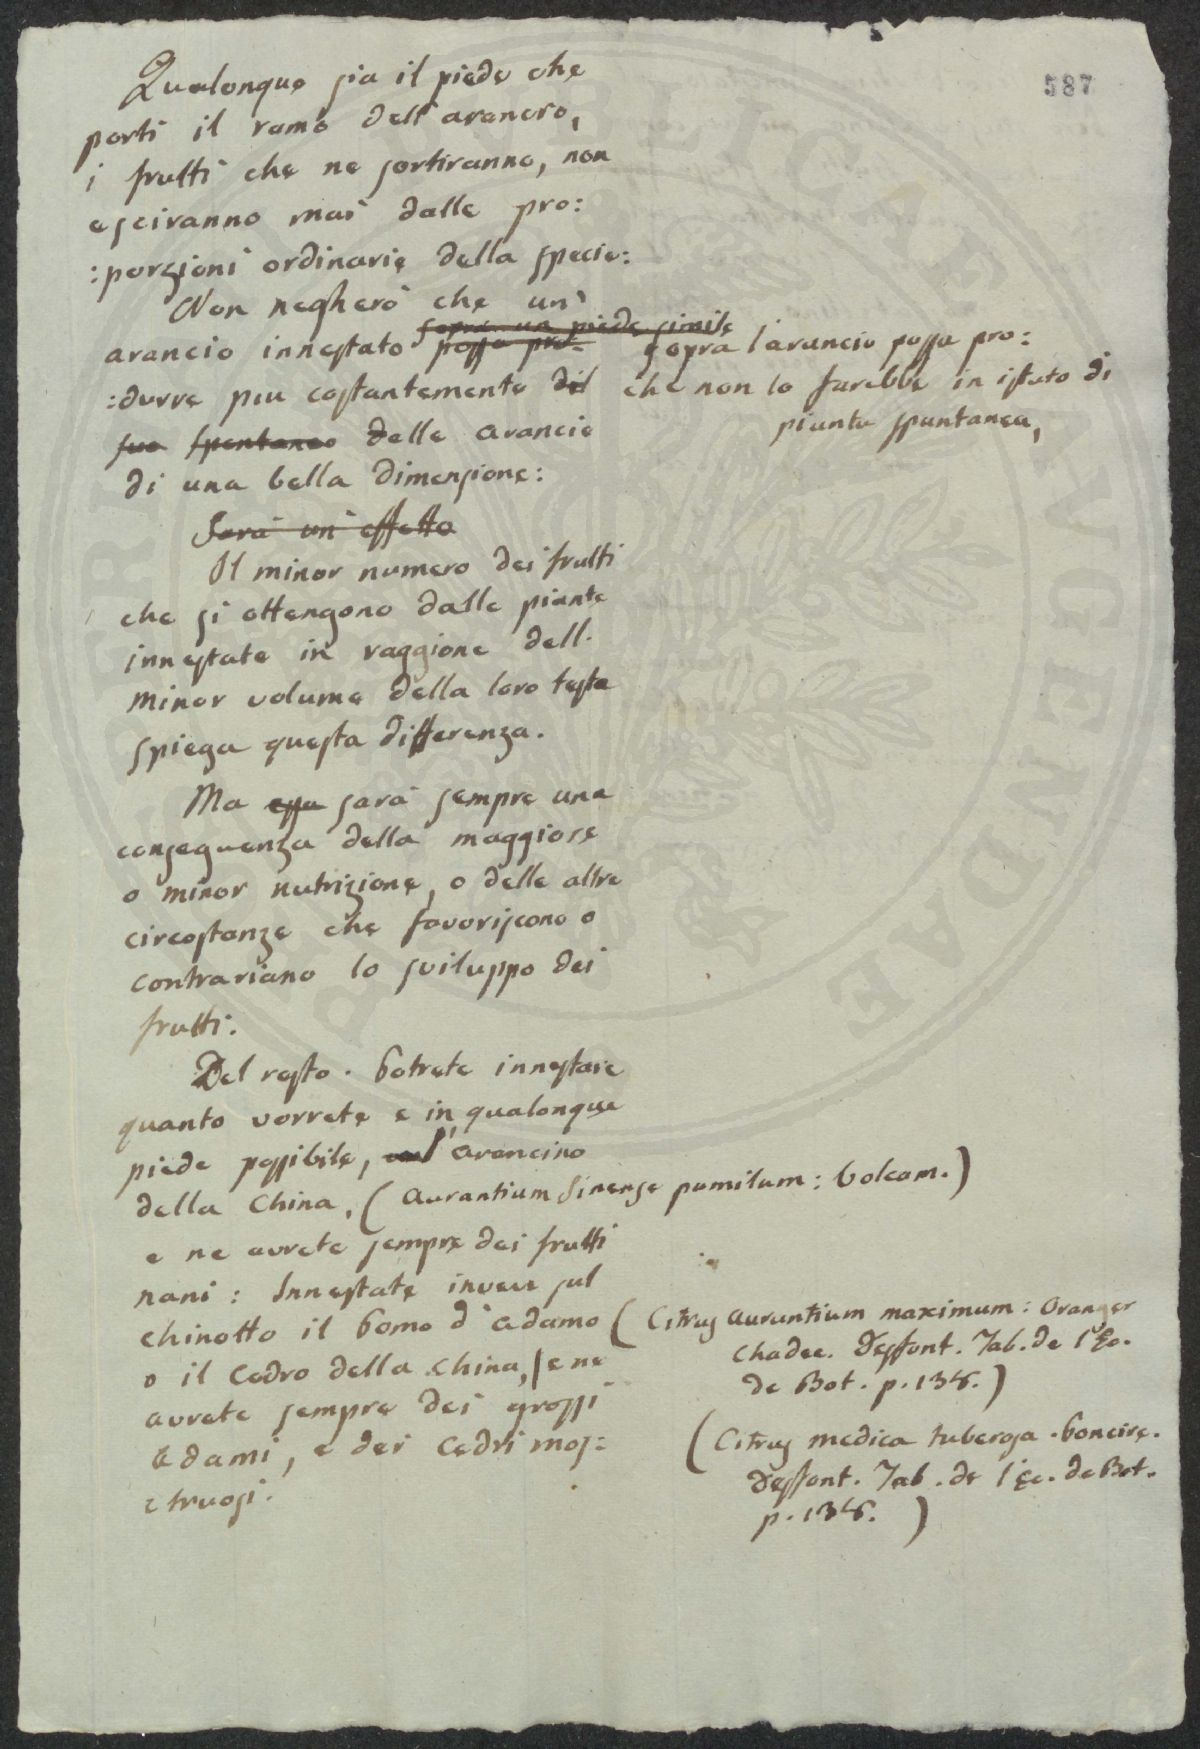 587
Qualonque sia il piede che
porti il ramo dell'arancio,
i frutti che ne sortiranno, non
esciranno mai dalle pro:
:porzioni ordinarie della specie:
Non negherò che un'
arancio innestato sopra un piede simile possa pro: sopra l'arancio possa pro:
:durre piu costantemente del che non lo farebbe in istato di
pianta spontanea,
suo spontaneo delle arancie
di una bella dimensione:
Sarà un'effetto
Il minor numero dei frutti
che si ottengono dalle piante
innestate in raggione dell.
minor volume della loro testa
spiega questa differenza.
Ma essa sarà sempre una
conseguenza della maggiore
o minor nutrizione, o delle altre
circostanze che favoriscono o
contrariano lo sviluppo dei
frutti.
Del resto. Potrete innestare
quanto vorrete e in qualonque
piede possibile, l'arancino
della China, (Aurantium Sinense pumilum: Volcam.)
e ne avrete sempre dei frutti
nani: Innestate invece sul
chinotto il Pomo d'Adamo (Citrus Aurantium maximum: Oranger
Chadec. Desfont. Tab. de l'Ec.
de Bot. p. 138.)
o il Cedro della China, e ne
avrete sempre dei grossi
Adami, e dei Cedri mos:
:truosi.
(Citrus medica tuberosa. Poncire.
Desfont. Tab. de l'Ec. de Bot.
p. 138.)